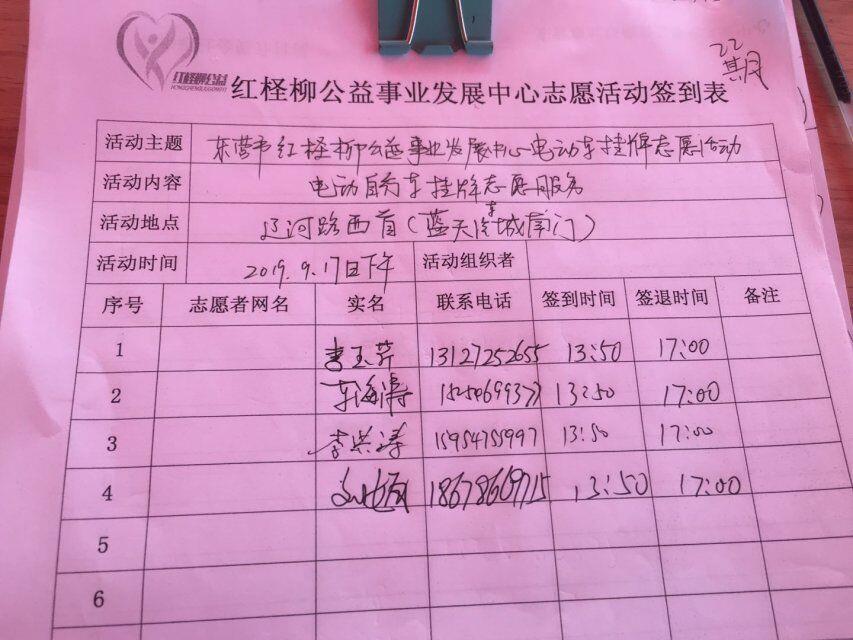 22
期
红柽柳公益
HONGCHENGLIUGONGYI
红柽柳公益事业发展中心志愿活动签到表
活动主题 东营市红柽柳公益事业发展中心电动车挂牌志愿活动
活动内容 电动自行车挂牌志愿服务
活动地点 辽河路西首(蓝天汽车城南门)
活动时间 2019.9.17日下午 活动组织者
序号 志愿者网名 实名 联系电话 签到时间 签退时间 备注
1 李玉芹 13127252655 13:50 17:00
2 海涛 13:50 17:00
3 李洪涛 15954755997 13:50 17:00
4 186786609715 13:50 17:00
5
6